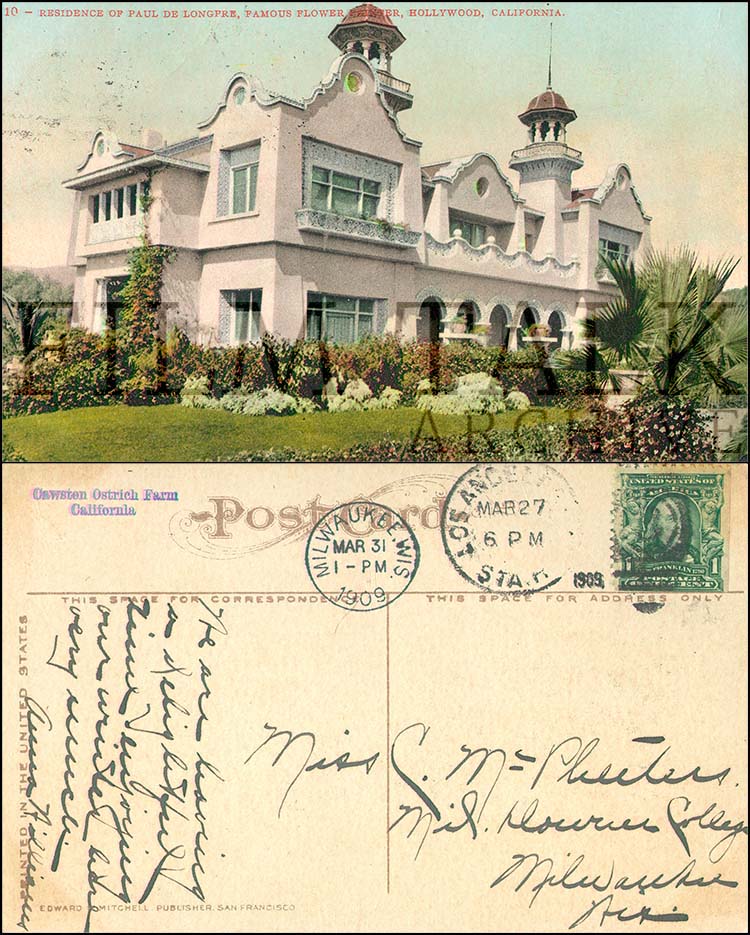 10 – RESIDENCE OF PAUL DE LONGPRE, FAMOUS FLOWER PAINTER, HOLLYWOOD, CALIFORNIA.
FILM TALK
ARCHIVE
Cawston Ostrich Farm
California
Post Card
MILWAUKEE, WIS.
MAR 31
1 - PM
1909
LOS ANGELES
MAR 27
6 PM
STA.
1909
UNITED STATES OF
FRANKLIN
1 POSTAGE 1
ONE CENT
THIS SPACE FOR CORRESPONDENCE
THIS SPACE FOR ADDRESS ONLY
PRINTED IN THE UNITED STATES
We are having
a delightful
time & enjoying
our winter here
very much
Anna Williams
Miss C. Mc Pheeters.
Mil. Downer College
Milwaukee
Wis.
EDWARD H. MITCHELL, PUBLISHER, SAN FRANCISCO